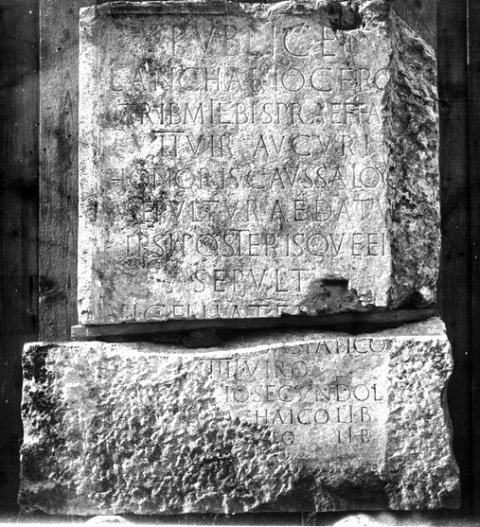 PVBLICE
LANCHARIO C F RO
TRIB MIL BIS PRAEF FA
II VIR AVGVRI
HONORIS CAVSSA LOC
SEPVLTVRAE DATV
IPSI POSTERISQVE EI
SEPVLT
STATICO
IIIIVIRO
IO SECVNDO L
ACHAICO LIB
LIB